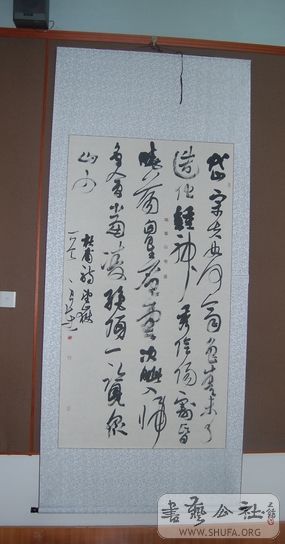 岱宗夫如何齊魯青未了
造化鍾神秀陰陽割昏
曉蕩胸生層雲決眦入歸
鳥會當凌絕頂一覽眾
山小
杜甫詩望嶽
書藝公社
WWW.SHUFA.ORG